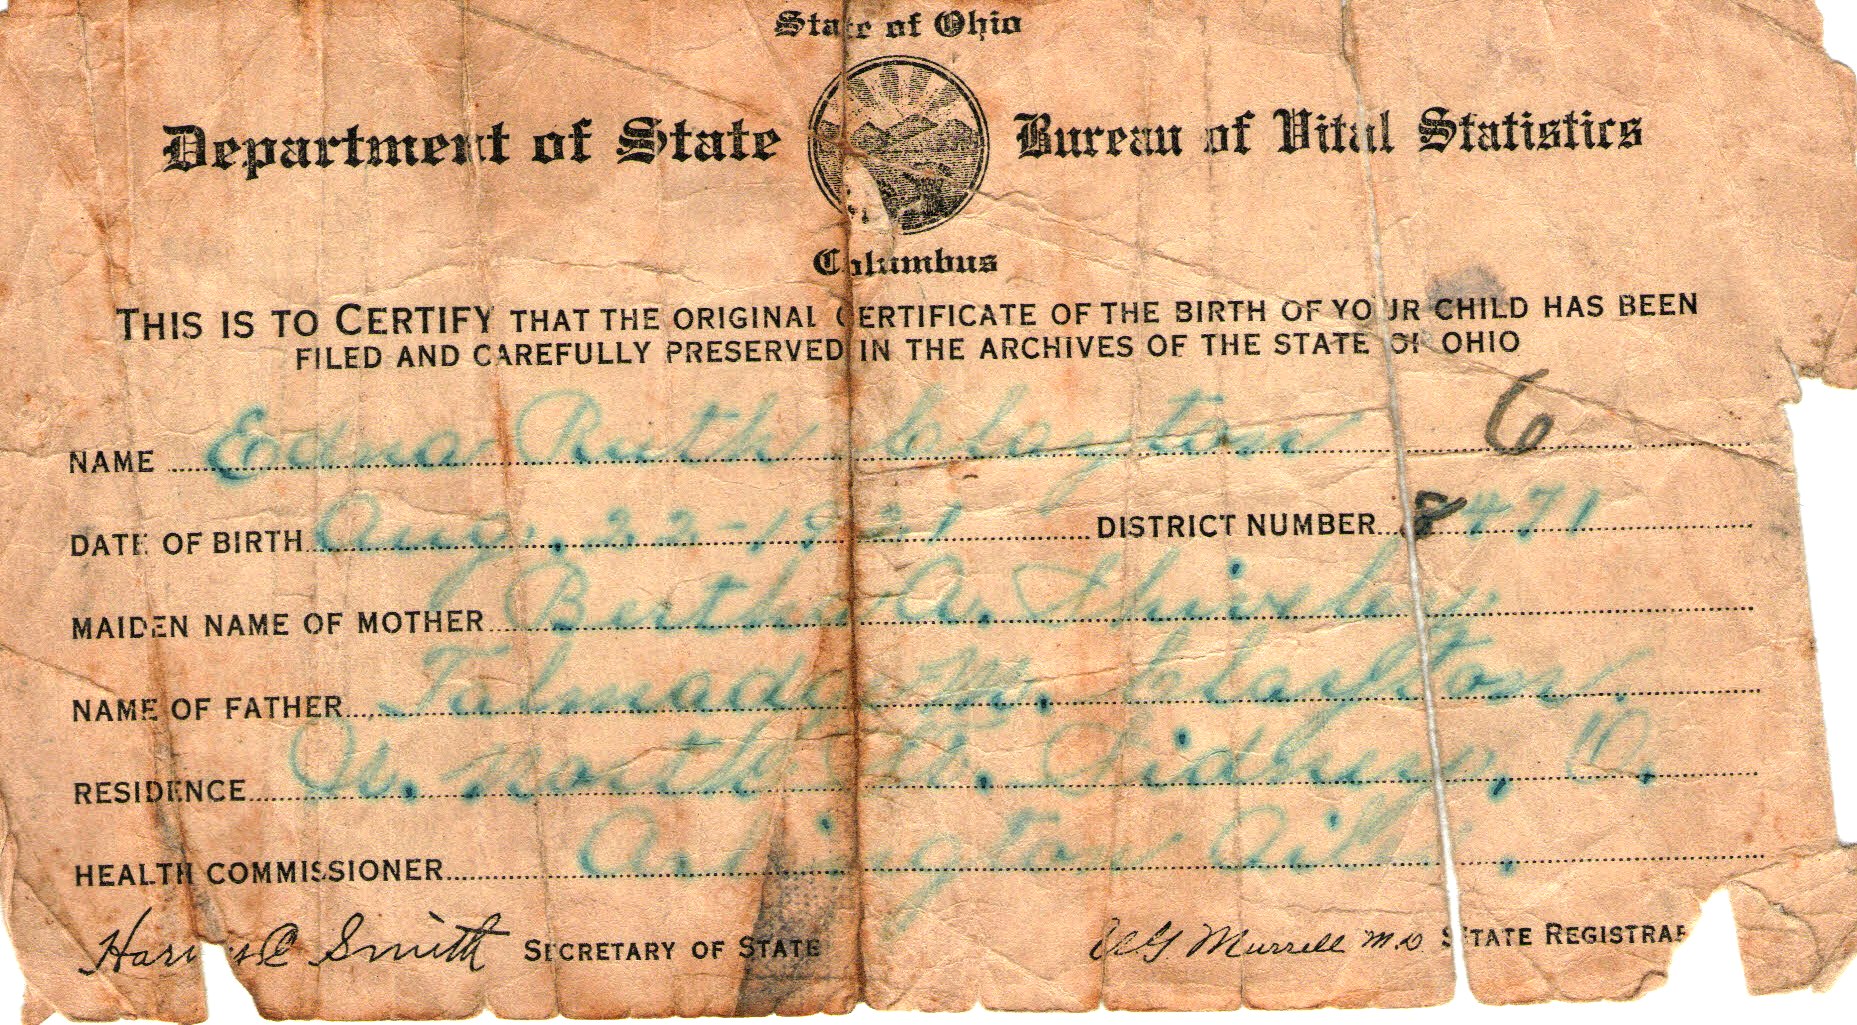 State of Ohio
Department of State Bureau of Vital Statistics
Columbus
THIS IS TO CERTIFY THAT THE ORIGINAL CERTIFICATE OF THE BIRTH OF YOUR CHILD HAS BEEN
FILED AND CAREFULLY PRESERVED IN THE ARCHIVES OF THE STATE OF OHIO
6
NAME Edna Ruth Clayton
DATE OF BIRTH Aug. 22-1921 DISTRICT NUMBER 8471
MAIDEN NAME OF MOTHER Bertha A. Shively.
NAME OF FATHER Talmadge M. Clayton.
RESIDENCE N. North St. Sidney, O.
HEALTH COMMISSIONER Arlington Ailes.
Harvey C Smith SECRETARY OF STATE Murrell M.D. STATE REGISTRAR